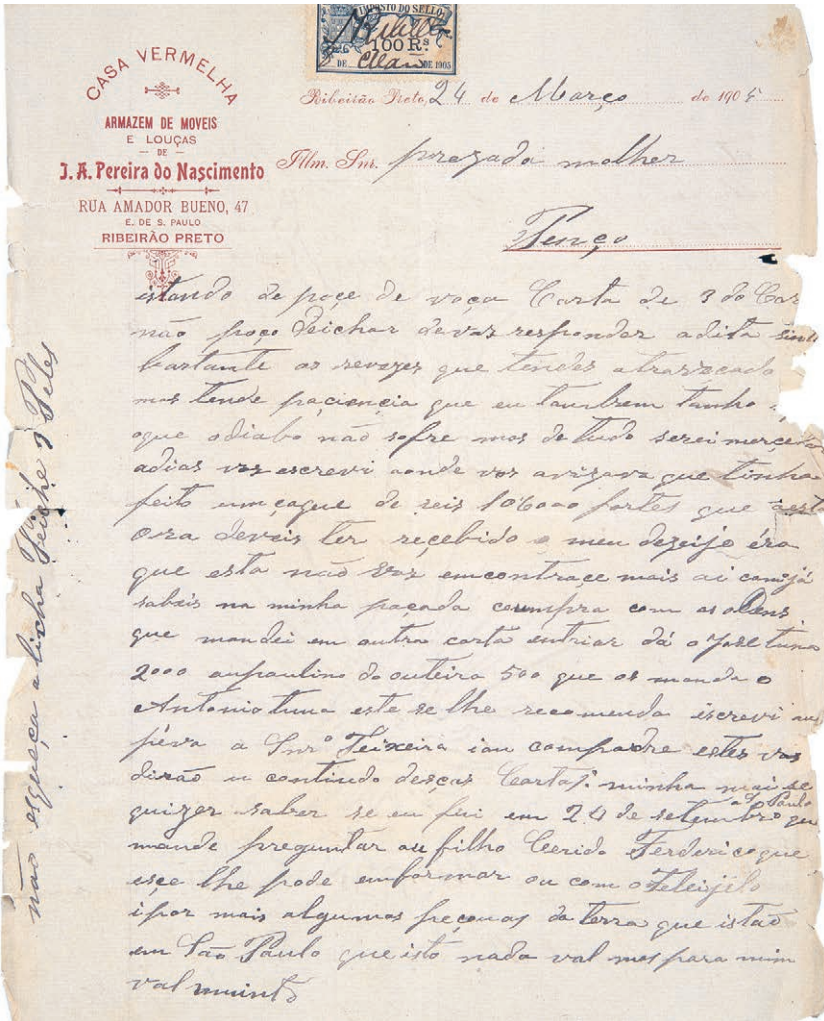 CASA VERMELHA
ARMAZEM DE MOVEIS
E LOUÇAS
DE
J. A. Pereira do Nascimento
RUA AMADOR BUENO, 47
E. DE S. PAULO
RIBEIRÃO PRETO
IMPOSTO DO SELLO
100 Rs
DE DE 1905
Ribeirão Preto, 24 de Março de 190
Illm. Snr. prezada molher
istando de poçe de voça Carta de 3 do Cor
não poço Deichar devos responder adita sint
bastante os revezes que tendes atraveçado
mas tende paciencia que eu tambem tenho
oque odiabo não sofre mas de tudo serei
adias vos escrevi aonde vos avizava que tinha
feito um çaque de reis 106000 fortes que
ora deveis ter reçebido o meu dezeijo éra
que esta não vos emcontraçe mais ai comjá
sabeis na minha paçada cumpra com as
que mandei em outra carta dá o Jose
2000 aupaulino do outeiro 500 que os manda o
Antonio este se lhe recomenda iscrevi au
a Snrº Teixeira iau compadre estes vos
dirão u contiudo desças Cartas minha mai se
quizer saber se eu fui em 24 de setembro a S. Paulo que
mande preguntar au filho Ferderico que
esce lhe pode emformar ou com o
ipor mais algumas peçouas da terra que istão
em São Paulo que isto nada val mas para mim
val muinto
não esqueça a